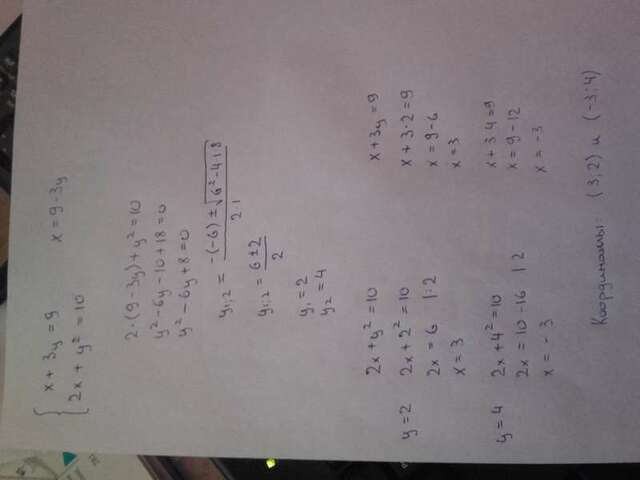 x + 3y = 9 x = 9 - 3y
2x + y² = 10
2·(9-3y)+y²=10
y²-6y-10+18=0
y²-6y+8=0
y₁;₂ = -(-6) ± √6²-4·1·8 / 2·1
y₁;₂ = 6±2 / 2
y₁ = 2
y₂ = 4
2x+y²=10 x+3y=9
y=2 2x+2²=10 x+3·2=9
2x=6 |:2 x=9-6
x=3 x=3
y=4 2x+4²=10 x+3·4=9
2x=10-16 |:2 x=9-12
x=-3 x=-3
Координаты: (3;2) и (-3;4)